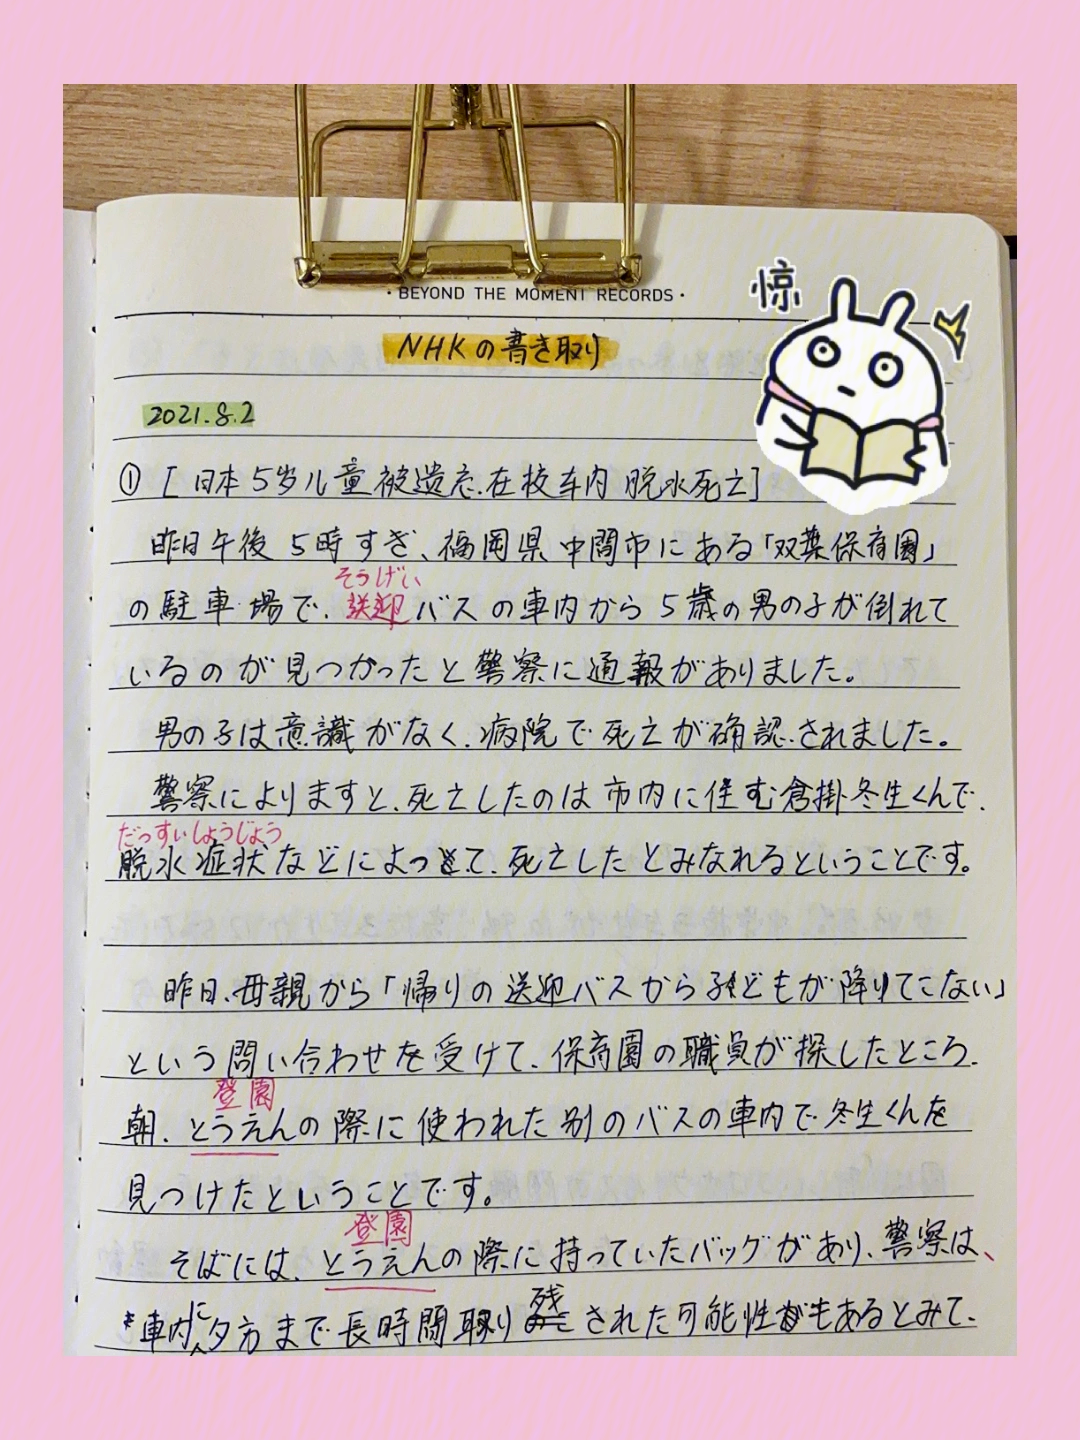 · BEYOND THE MOMENT RECORDS ·
惊
NHKの書き取り
2021.8.2
① [日本5岁儿童被遗忘在校车内 脱水死亡]
昨日午後5時すぎ、福岡県中間市にある「双葉保育園」
そうげい
の駐車場で、送迎バスの車内から5歳の男の子が倒れて
いるのが見つかったと警察に通報がありました。
男の子は意識がなく、病院で死亡が確認されました。
警察によりますと、死亡したのは市内に住む倉掛冬生くんで、
だっすいしょうじょう
脱水症状などによって、死亡したとみなれるということです。
昨日、母親から「帰りの送迎バスから子どもが降りてこない」
という問い合わせを受けて、保育園の職員が探したところ、
登園
朝、とうえんの際に使われた別のバスの車内で冬生くんを
見つけたということです。
登園
そばには、とうえんの際に持っていたバッグがあり、警察は、
残
*車内に夕方まで長時間取りされた可能性もあるとみて、